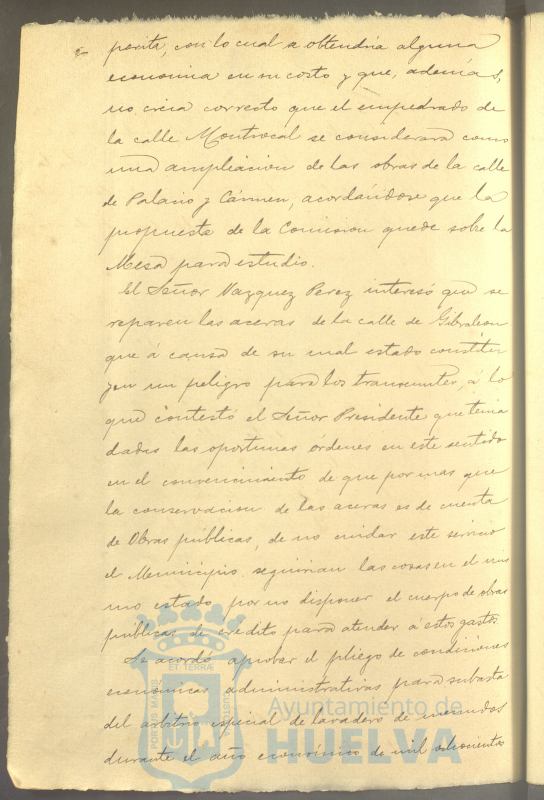 perita, con lo cual se obtendria alguna
economia en su costo y que, además,
no creia correcto que el empedrado de
la calle Montrocal se considerara como
una ampliacion de las obras de la calle
de Palacio y Cármen, acordándose que la
propuesta de la Comision quede sobre la
Mesa para estudio.
El Señor Vazquez Perez interesó que se
reparen las aceras de la calle de Gibraleon
que á causa de su mal estado constitu
yen un peligro para los transeuntes, á lo
que contestó el Señor Presidente que tenia
dadas las oportunas órdenes en este sentido
en el convencimiento de que por mas que
la conservacion de las aceras es de cuenta
de Obras públicas, de no cuidar este servicio
el Municipio seguirian las cosas en el mis
mo estado por no disponer el cuerpo de obras
publicas de credito para atender á estos gastos
Se acordó aprobar el pliego de condiciones
economicas administrativas para subasta
del arbitrio especial de lavadero de menudos
durante el año económico de mil ochocientos
PORTUS MARIS
ET TERRÆ
CUSTODIA
Ayuntamiento de
HUELVA